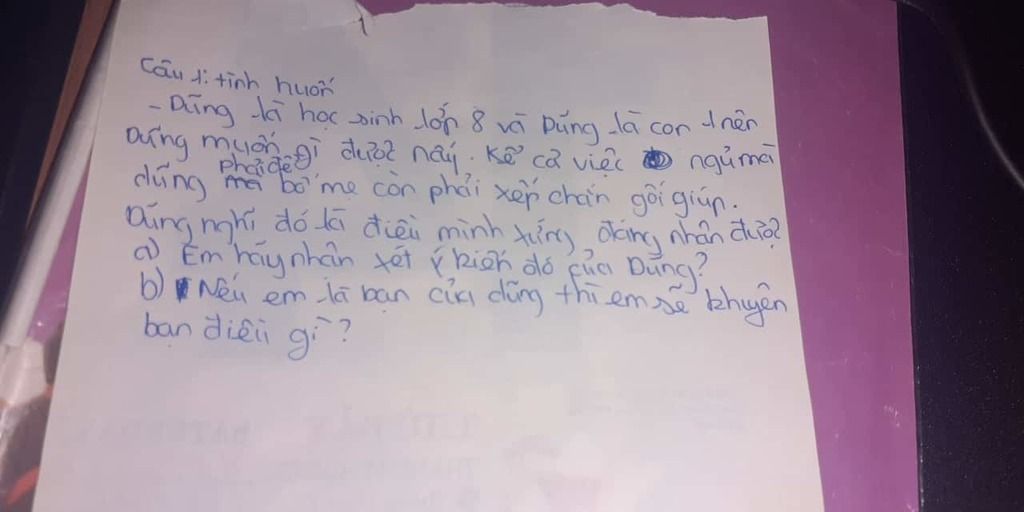 Câu 1: tình huốn
- Dũng là học sinh lớp 8 và Dũng là con 1 nên
Dũng muốn gì được nấy. Kể cả việc ngủ mà
dũng phải để bố mẹ còn phải xếp chăn gối giúp.
Dũng nghĩ đó là điều mình xứng đáng nhân được
a) Em hãy nhân xét ý kiến đó của Dũng?
b) Nếu em là bạn của dũng thì em sẽ khuyên
bạn điều gì?